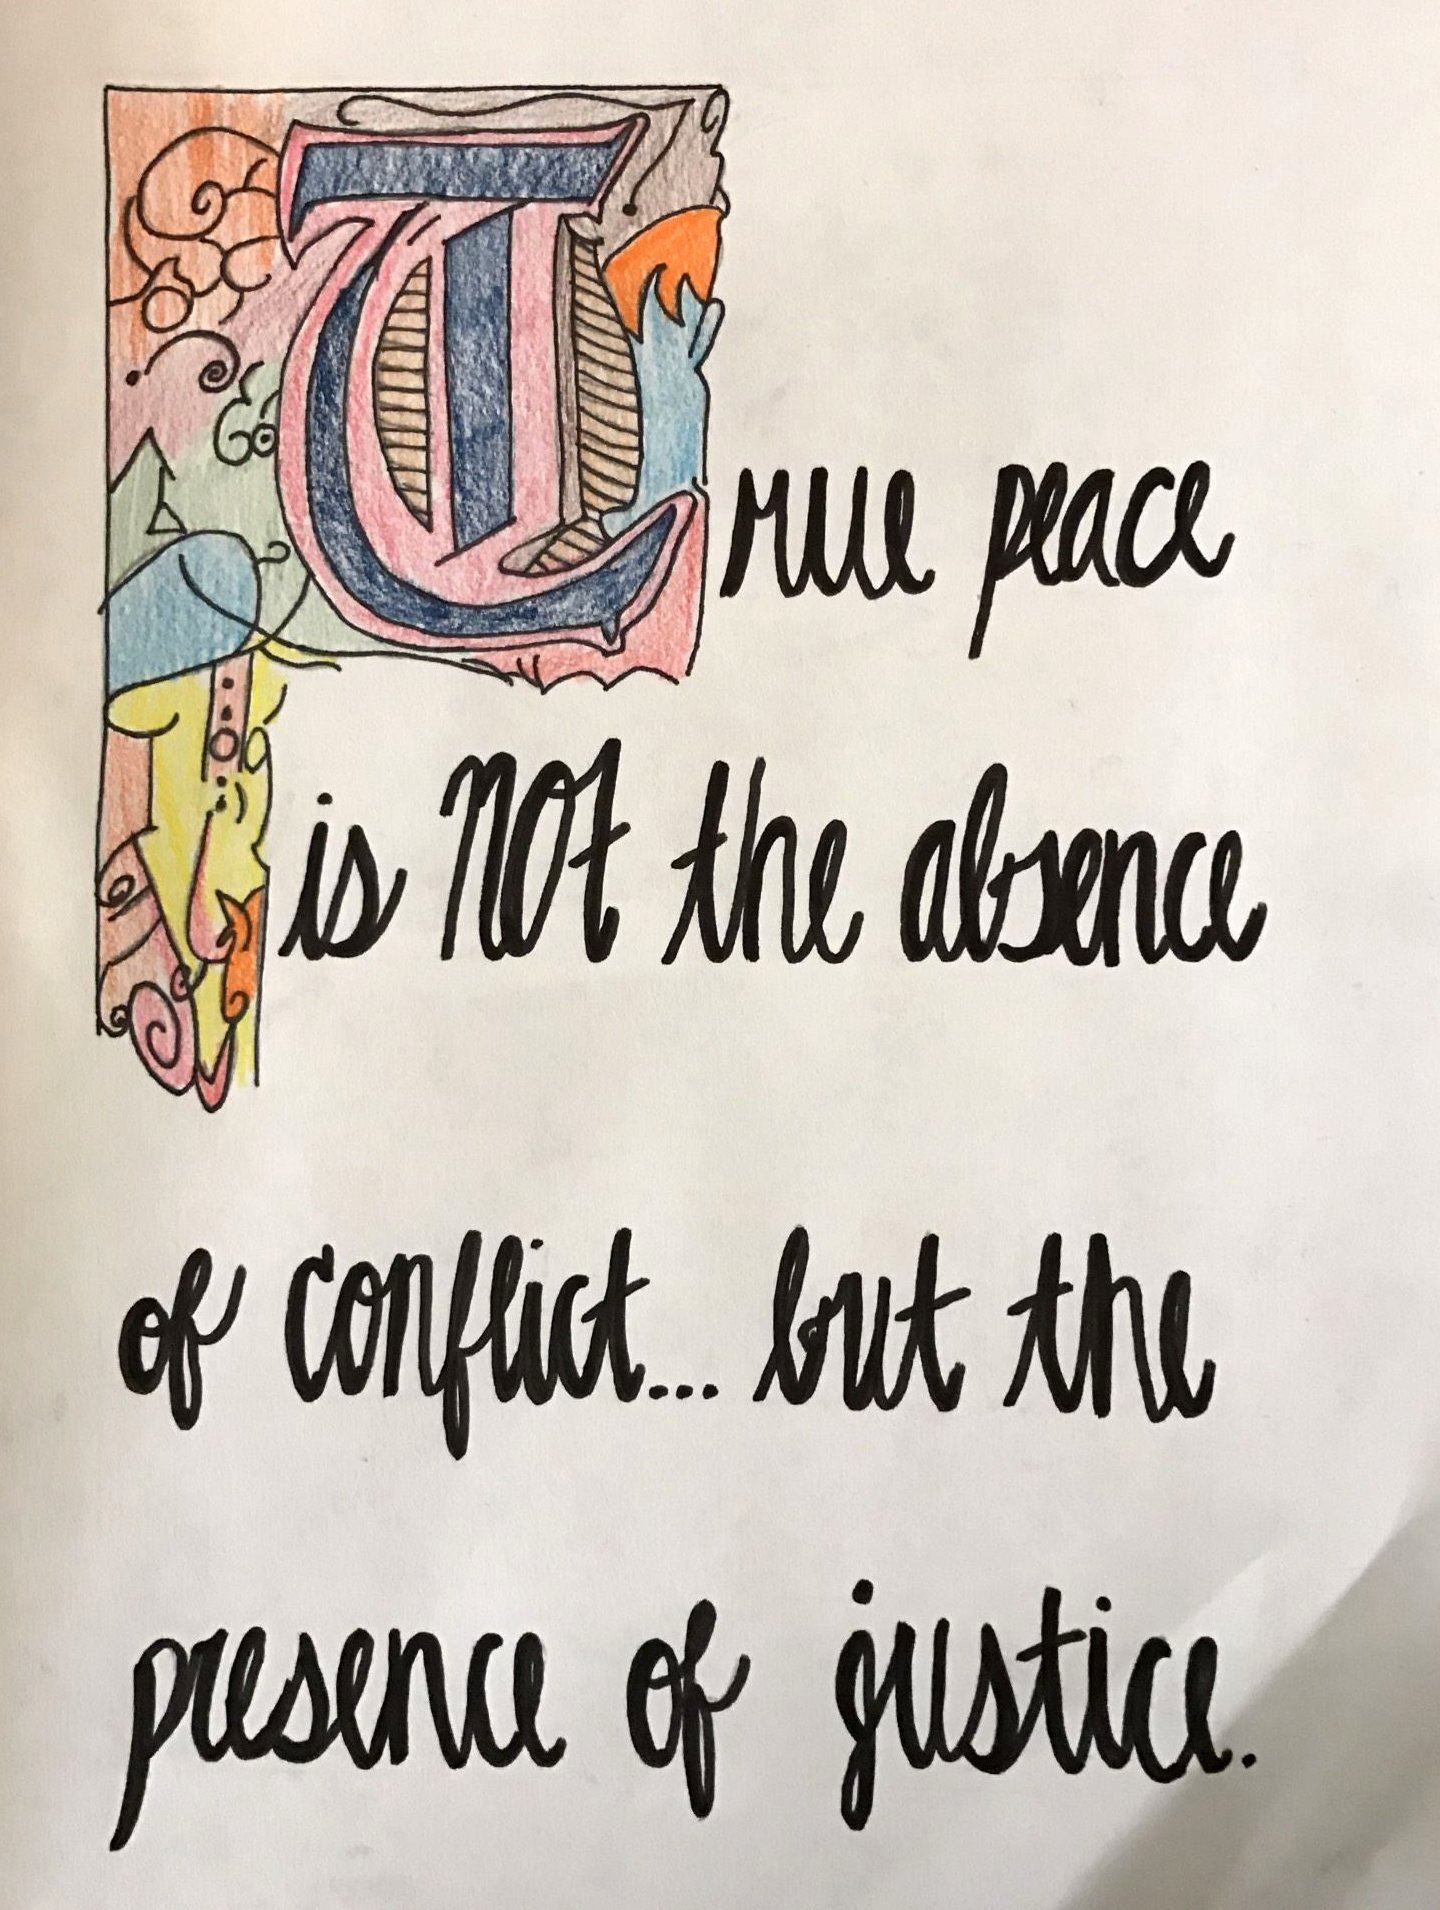 True peace
is not the absence
of conflict... but the
presence of justice.